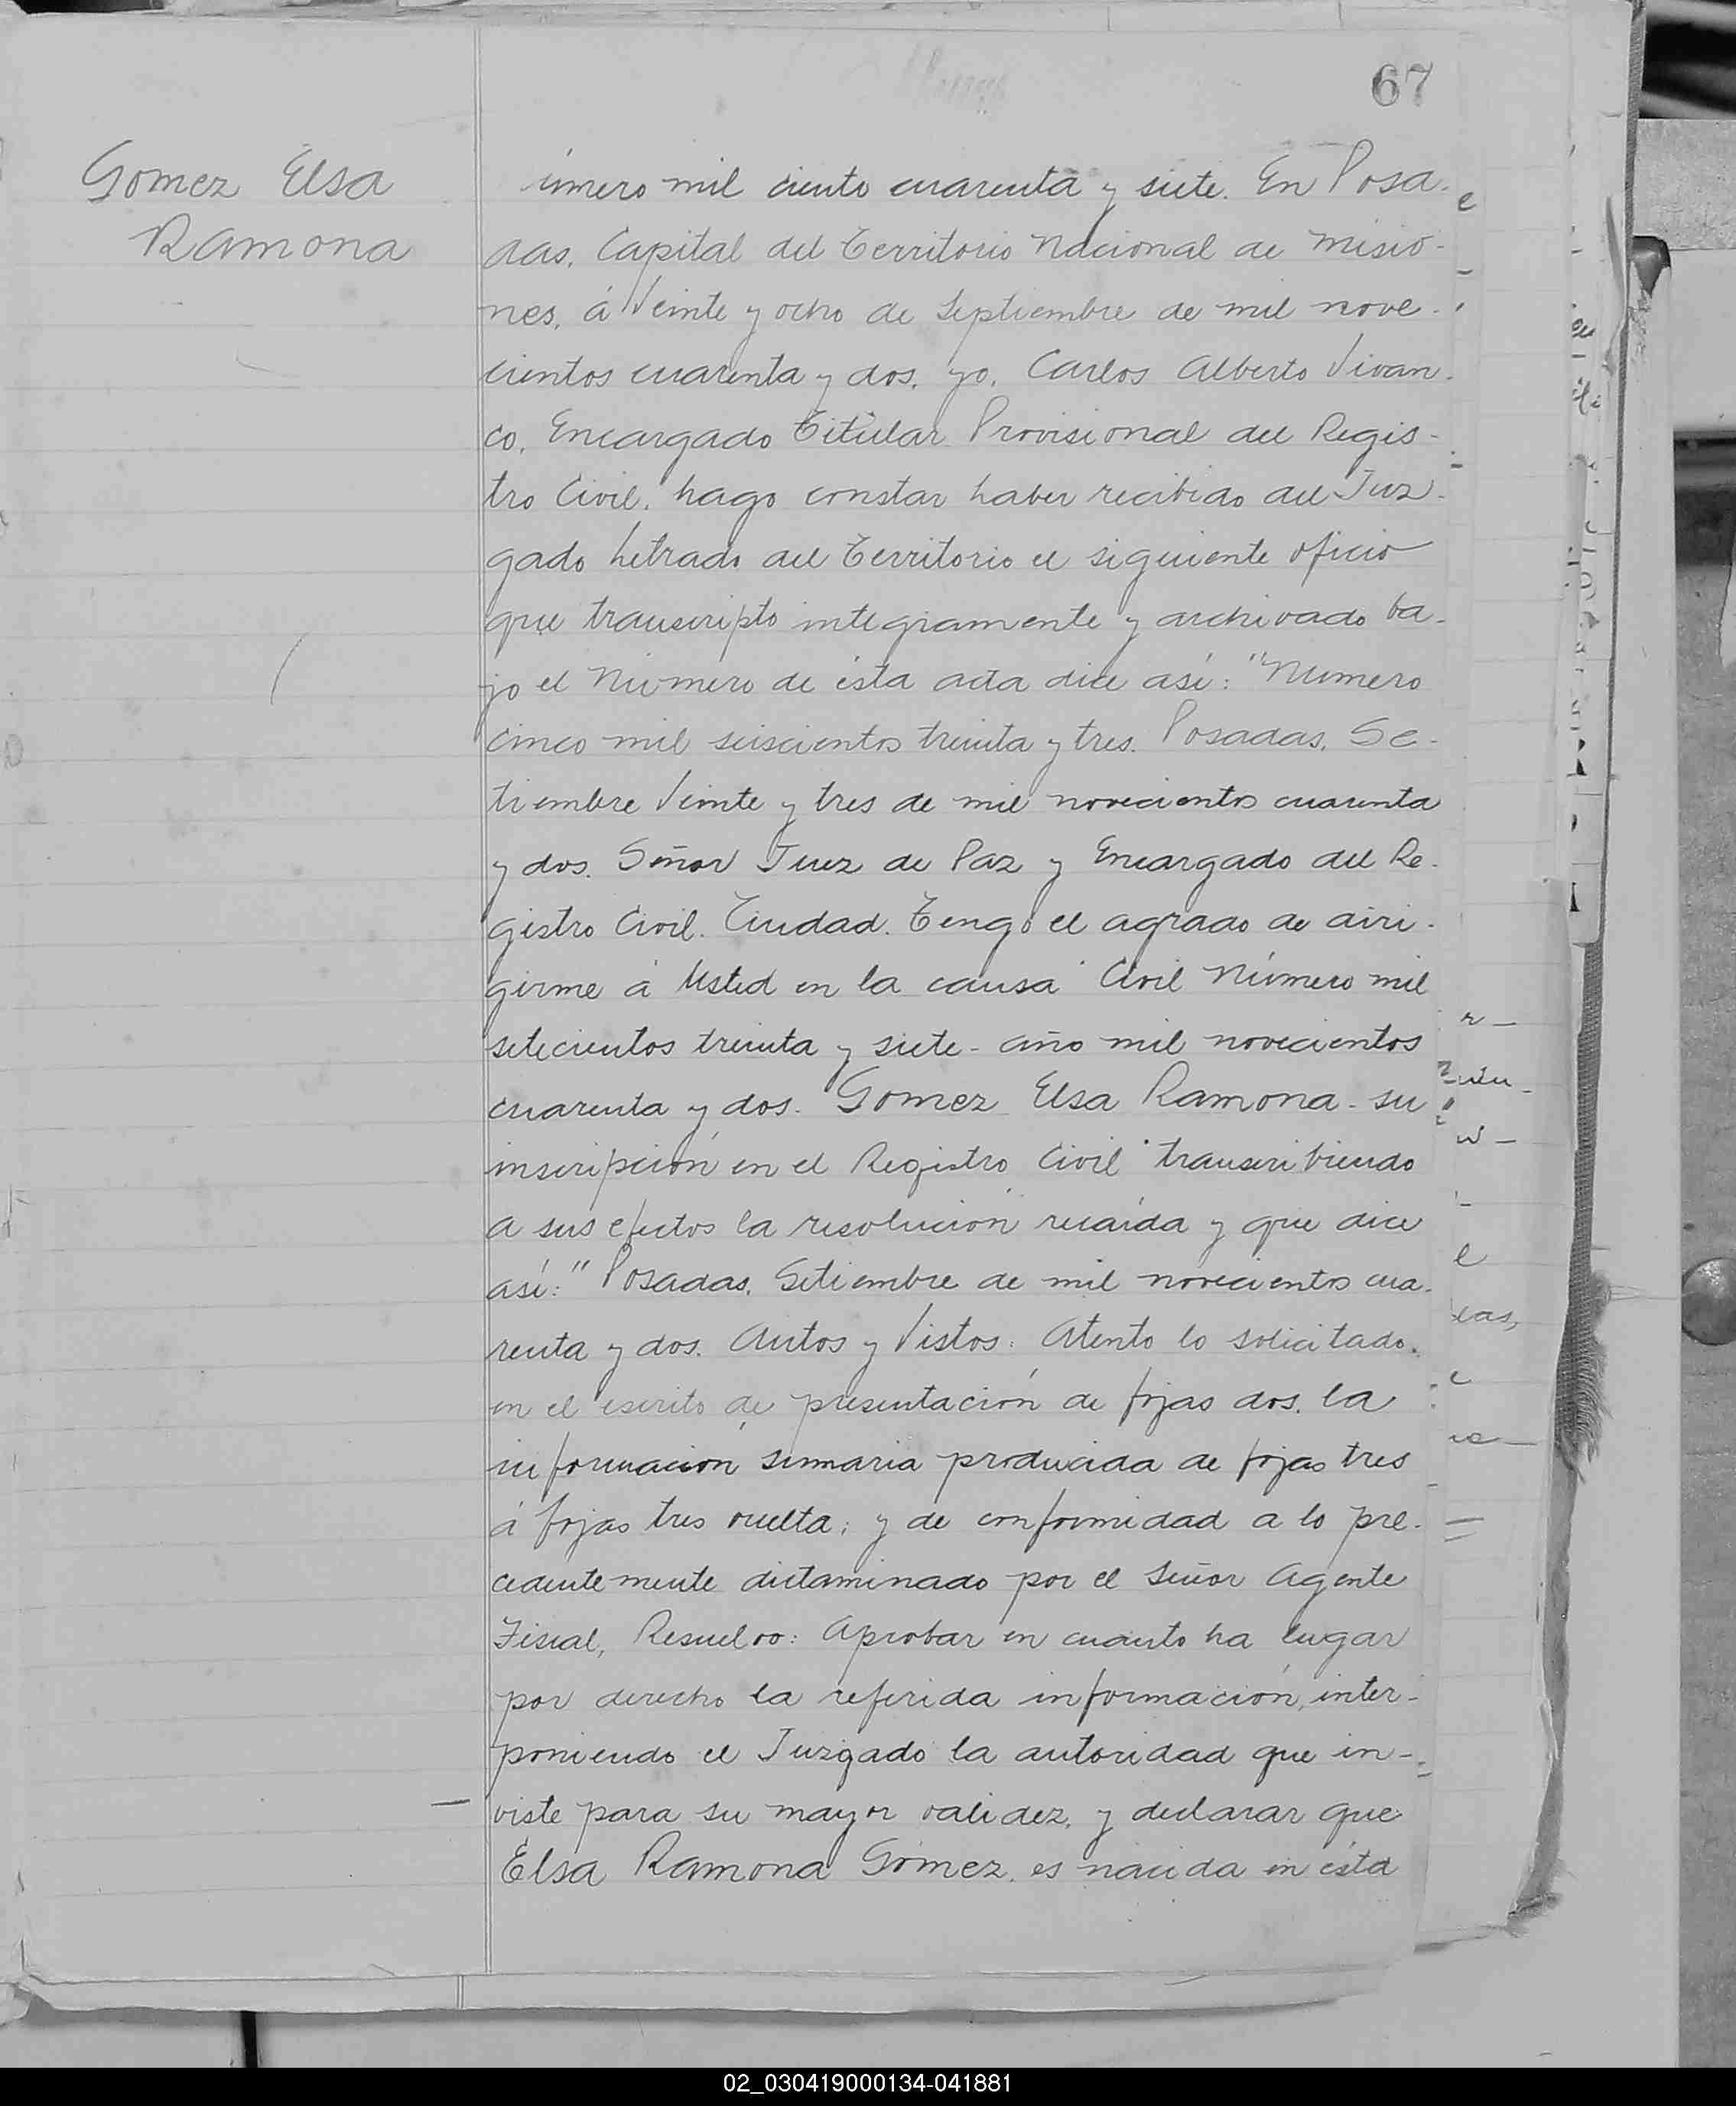 67
Gomez Elsa
Ramona
úmero mil ciento cuarenta y siete. En Posa-
das, Capital del Territorio Nacional de Misio-
nes, á Veinte y ocho de Septiembre de mil nove-
cientos cuarenta y dos, yo, Carlos Alberto Vivan-
co, Encargado Titular Provisional del Regis-
tro Civil, hago constar haber recibido del Juz-
gado Letrado del Territorio el siguiente oficio
que transcripto integramente y archivado ba-
jo el Número de ésta acta dice así: "Numero
cinco mil seiscientos treinta y tres. Posadas, Se-
tiembre Veinte y tres de mil novecientos cuarenta
y dos. Señor Juez de Paz y Encargado del Re-
gistro Civil. Ciudad. Tengo el agrado de diri-
girme á Usted en la causa Civil Número mil
setecientos treinta y siete - año mil novecientos
cuarenta y dos. Gomez Elsa Ramona - su
inscripción en el Registro Civil" transcribiendo
a sus efectos la resolución recaída y que dice
así: "Posadas, Setiembre de mil novecientos cua-
renta y dos. Autos y Vistos: Atento lo solicitado
en el escrito de presentación de fojas dos, la
información sumaria producida de fojas tres
á fojas tres vuelta; y de conformidad a lo pre-
cedentemente dictaminado por el Señor Agente
Fiscal, Resuelvo: Aprobar en cuanto ha lugar
por derecho la referida información, inter-
poniendo el Juzgado la autoridad que in-
viste para su mayor validez, y declarar que
Elsa Ramona Gómez, es nacida en ésta
02_030419000134-041881